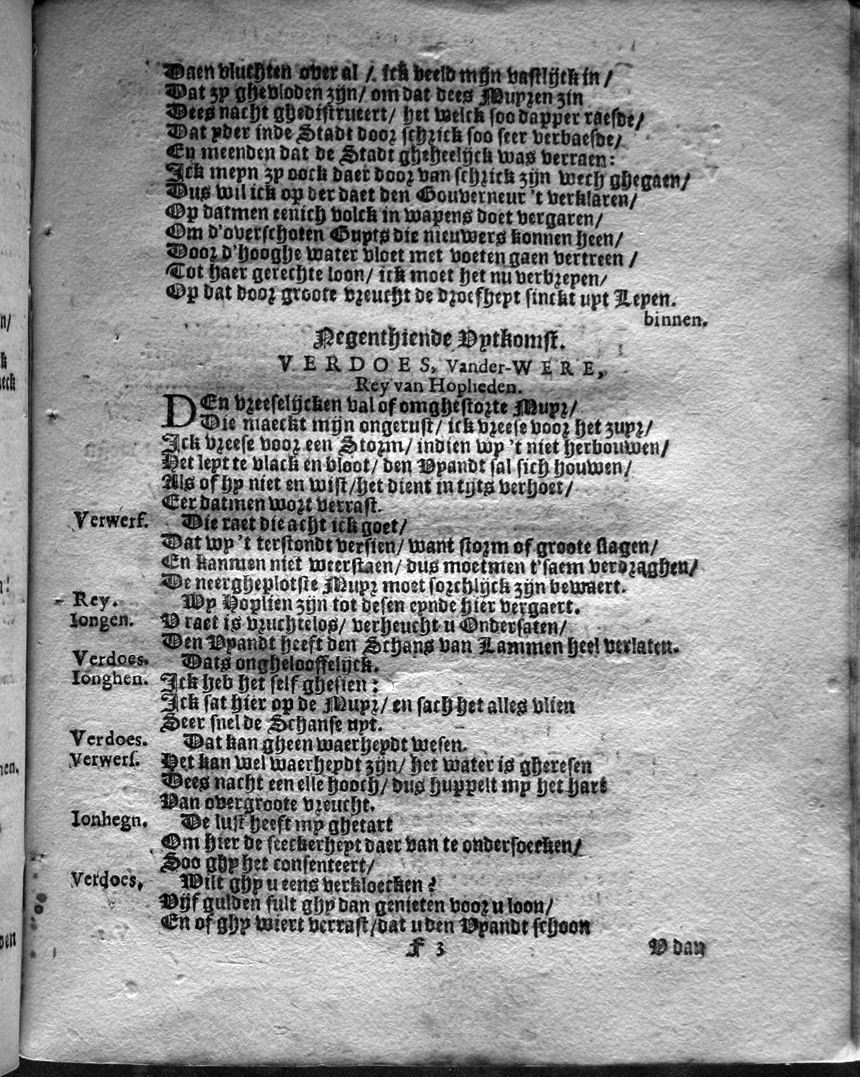 Daen vluchten over al / ick beeld mijn vastlijck in /
Dat zy ghevloden zijn / om dat dees Muyren zin
Dees nacht ghedistrueert / het welck soo dapper raesde /
Dat yder inde Stadt door schrick soo seer verbaesde /
En meenden dat de Stadt gheheelijck was verraen:
Ick meyn zy oock daer door van schrick zijn wech ghegaen /
Dus wil ick op der daet den Gouverneur 't verklaren /
Op datmen eenich volck in wapens doet vergaren /
Om d'overschoten Guyts die nieuwers konnen heen /
Door d'hooghe water vloet met voeten gaen vertreen /
Tot haer gerechte loon / ick moet het nu verbreyen /
Op dat door groote vreucht de droefheyt sinckt uyt Leyen.
binnen.
Negenthiende Vytkomst.
VERDOES, Vander-WERE,
Rey van Hoplieden.
DEn vreeselijcken val of omghestorte Muyr /
Die maeckt mijn ongerust / ick vreese voor het zuyr /
Ick vreese voor een Storm / indien wy 't niet herbouwen /
Het leyt te vlack en bloot / den Vyandt sal sich houwen /
Als of hy niet en wist / het dient in tijts verhoet /
Eer datmen wort verrast.
Verwerf. Die raet die acht ick goet /
Dat wy 't terstondt versien / want storm of groote slagen /
En kanmen niet weerstaen / dus moetmen t'saem verdraghen /
De neergheplotste Muyr moet sorchlijck zijn bewaert.
Rey. Wy Hoplien zijn tot desen eynde hier vergaert.
Iongen. V raet is vruchtelos / verheucht u Ondersaten /
Den Vyandt heeft den Schans van Lammen heel verlaten.
Verdoes. Dats onghelooffelijck.
Ionghen. Ick heb het self ghesien:
Ick sat hier op de Muyr / en sach het alles vlien
Seer snel de Schanse uyt.
Verdoes. Dat kan gheen waerheydt wesen.
Verwerf. Het kan wel waerheydt zijn / het water is gheresen
Dees nacht een elle hooch / dus huppelt my het hart
Van overgroote vreucht.
Ionhegn. De lust heeft my ghetart
Om hier de seeckerheyt daer van te ondersoecken /
Soo ghy het consenteert /
Verdoes, Wilt ghy u eens verkloecken?
Vijf gulden sult ghy dan genieten voor u loon /
En of ghy wiert verrast / dat u den Vyandt schoon
F 3 V dan